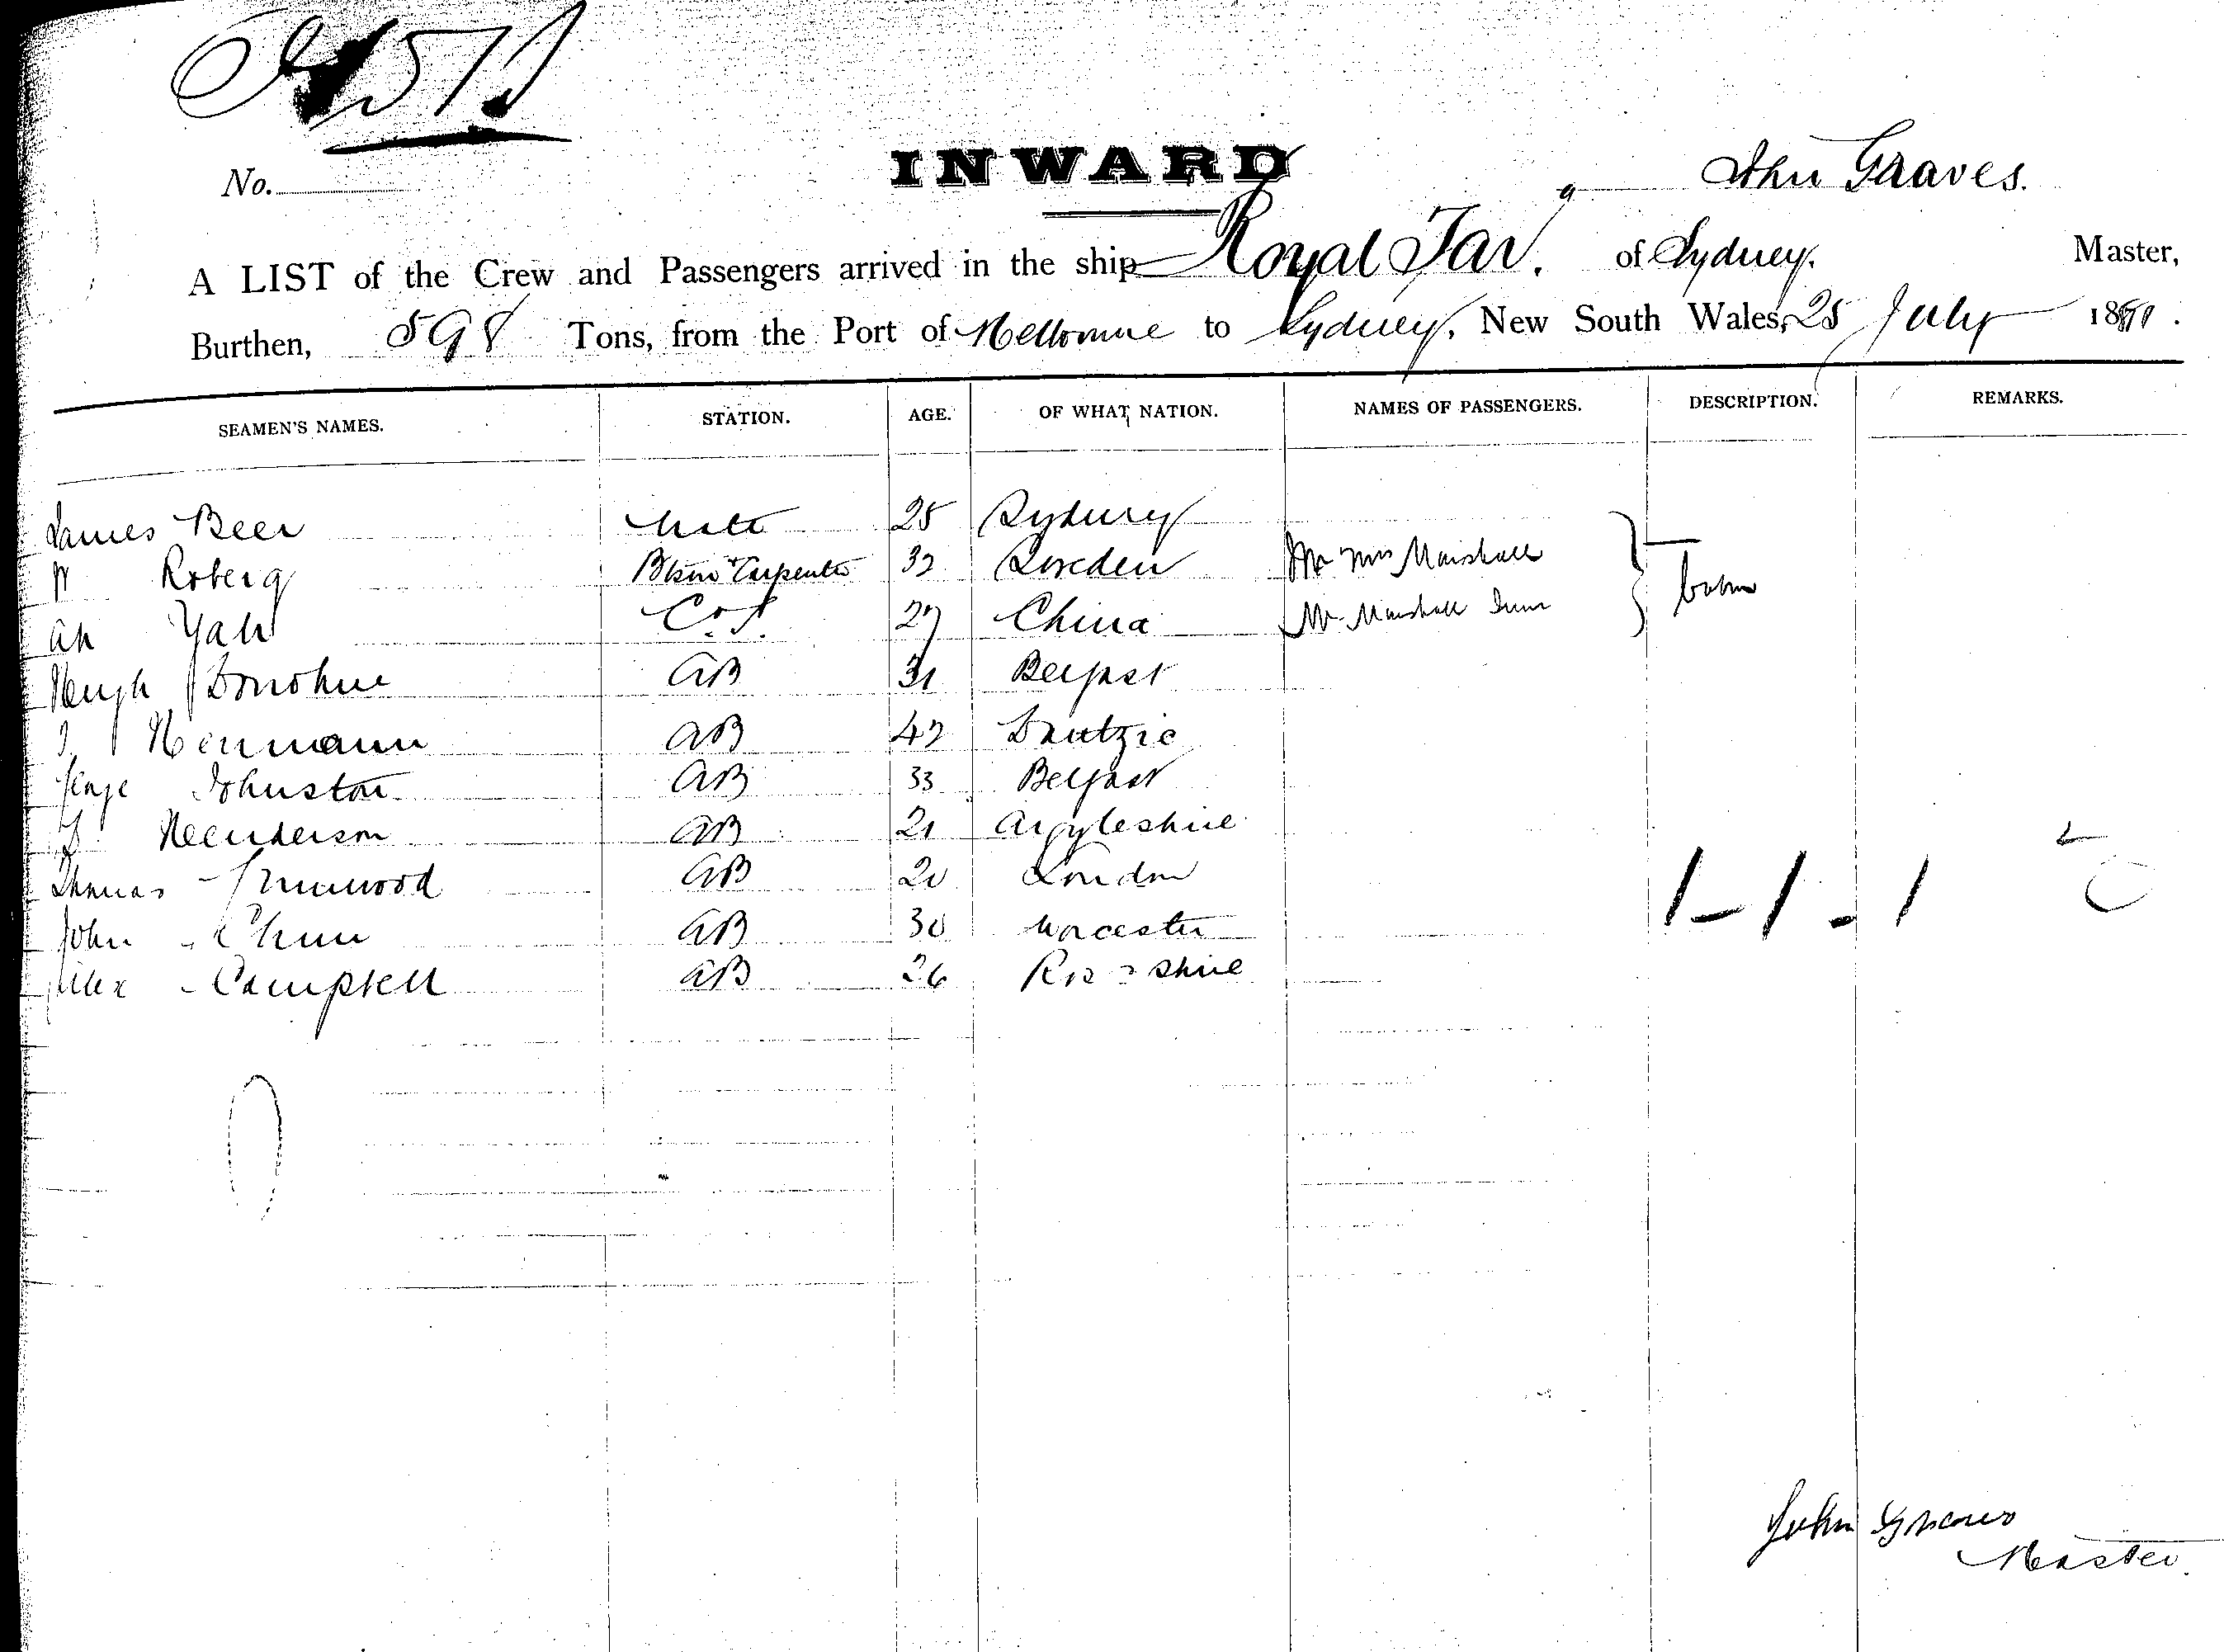 No.
INWARD
John Graves.
A LIST of the Crew and Passengers arrived in the ship Royal Tar. of Sydney. Master,
Burthen, 598 Tons, from the Port of Melbourne to Sydney, New South Wales, 25 July 18
SEAMEN'S NAMES. STATION. AGE. OF WHAT NATION. NAMES OF PASSENGERS. DESCRIPTION. REMARKS.
James Beer Mate 25 Sydney
Roberg Carpenter 32 Sweden Mr Mrs Marshall
Ah Yah C.S. 27 China Mr Marshall Junr
Hugh Donohue AB 31 Belfast
Hermann AB 42 Dantzic
Johnston AB 33 Belfast
Henderson AB 21 Argyleshire
Thomas AB 20 London
John AB 30 Worcester
Alex Campbell AB 26 Ross shire
1 - 1 - 1
John Graves
Master.